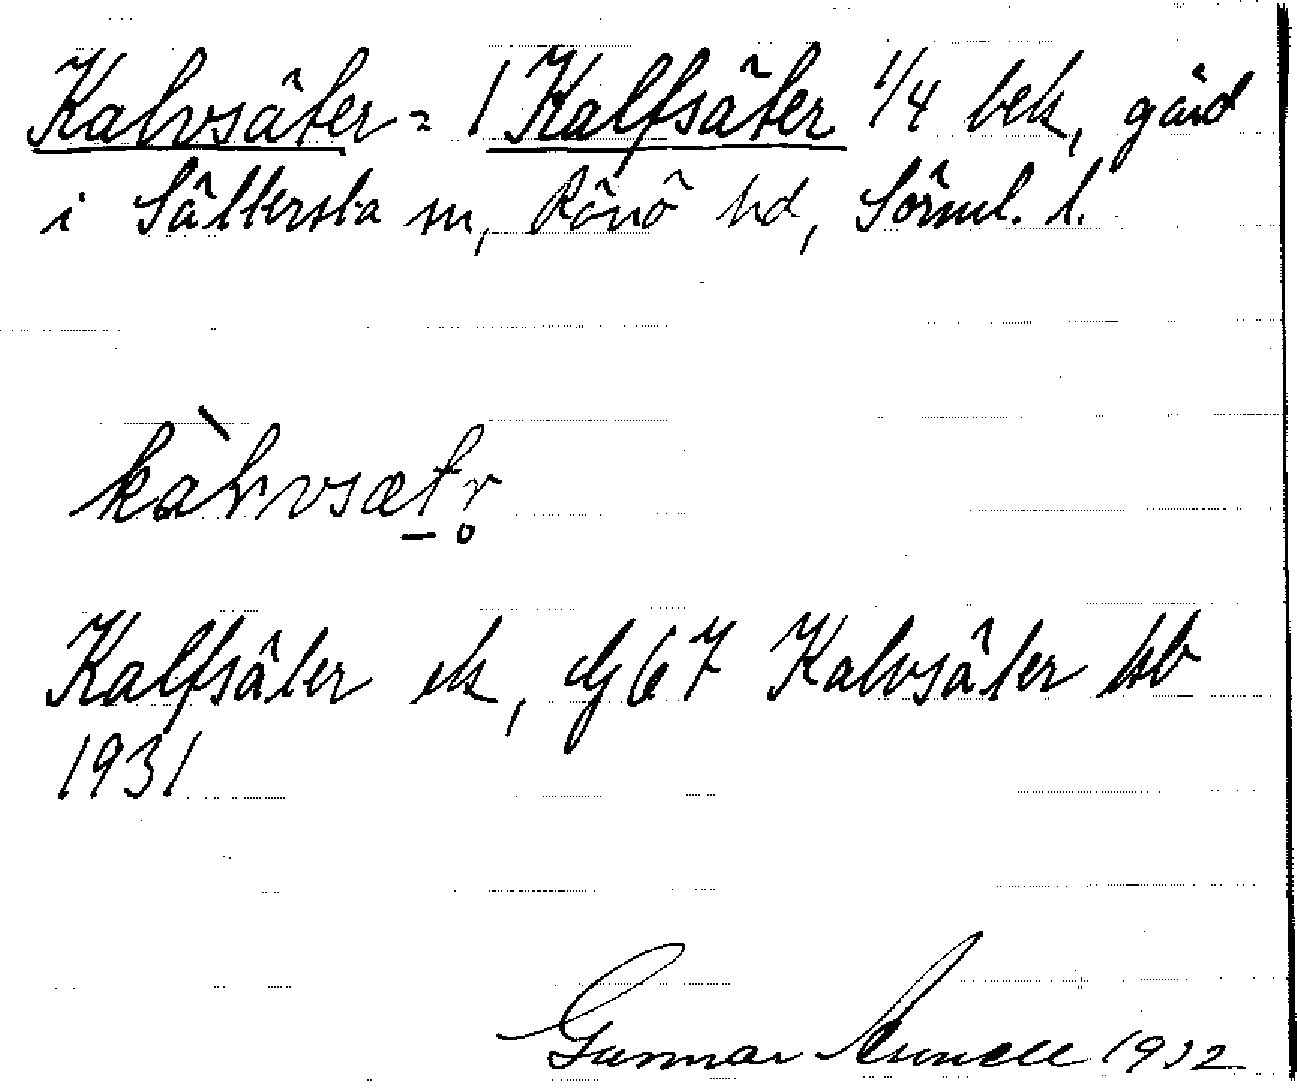 Kalvsäter = 1 Kalfsäter 1/4 bek, gård
i Sättersta sn, Rönö hd, Sörml. l.
kàlvsætr̥
Kalfsäter ek, dj 67 Kalvsäter kb
1931
Gunnar 1932